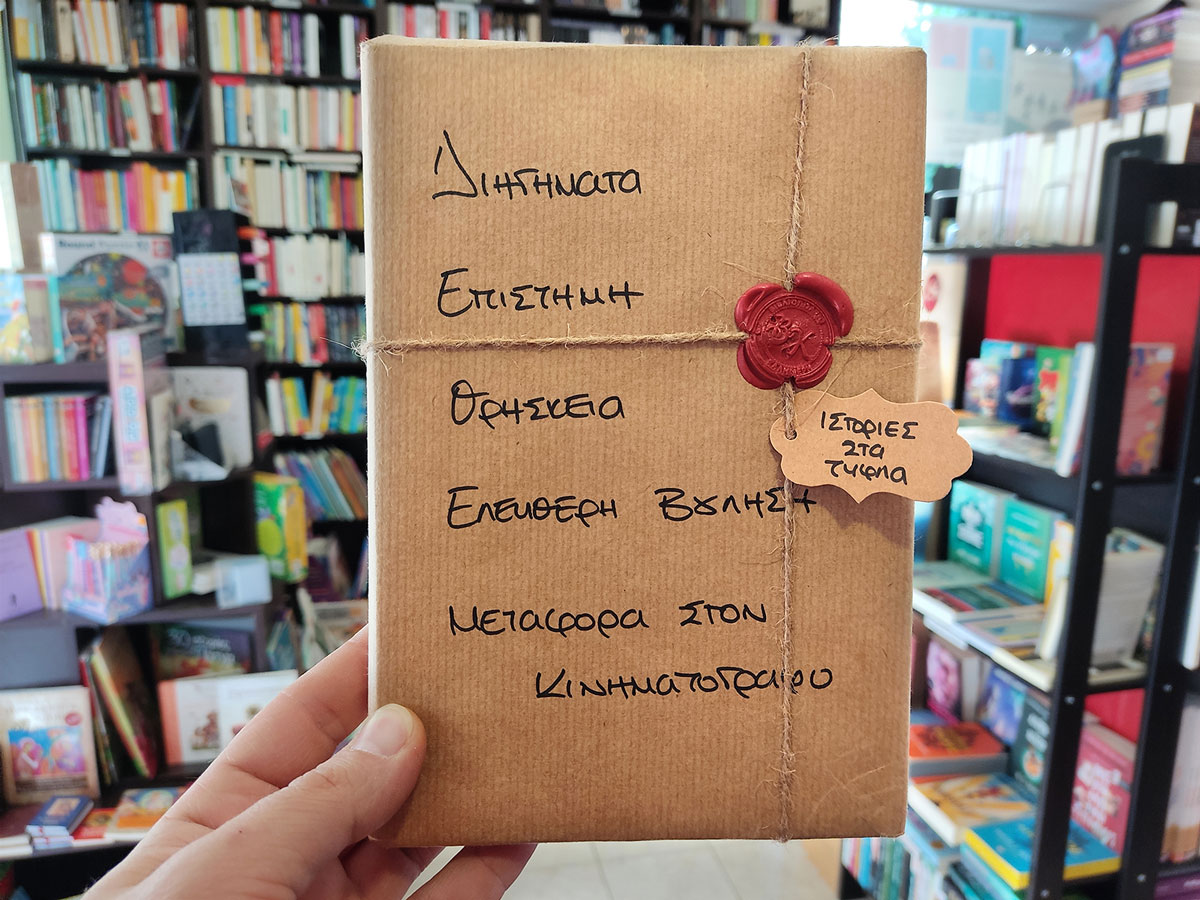 Διηγηματα
Επιστημη
Θρησκεια
Ελευθερη Βουληση
Μεταφορα στον
Κινηματογραφο
Ιστοριες
στα
τυφλα